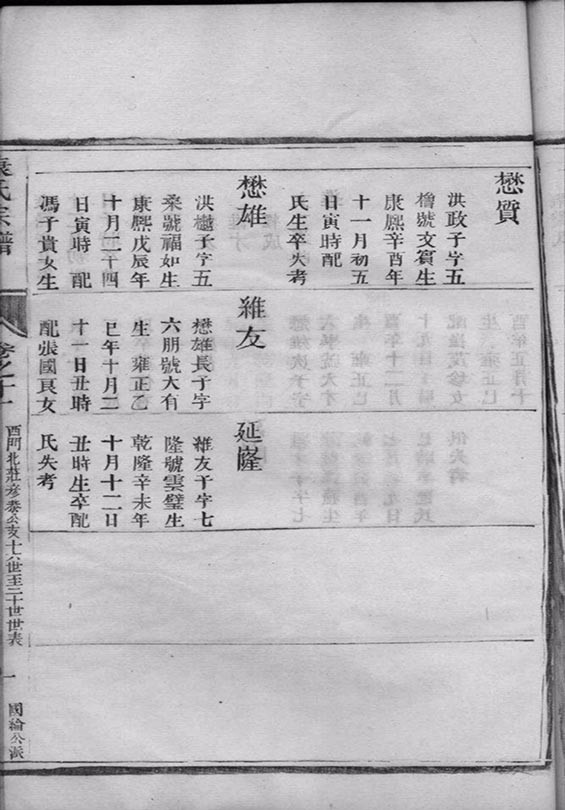 懋質
洪政子字五
檜號文質生
康熙辛酉年
十一月初五
日寅時配
氏生卒失考
懋雄
洪樾子字五
桑號福如生
康熙戊辰年
十月二十四
日寅時配
馮子貴女生
維友
懋雄長子字
六朋號大有
生雍正乙
巳年十月三
十一日丑時
配張國良女
延隆
維友子字七
隆號雲璧生
乾隆辛未年
十月十二日
丑時生卒配
氏失考
袁氏宗譜
卷之十
酉門北莊彥泰公支十六世至二十世世表
一
國綸公派